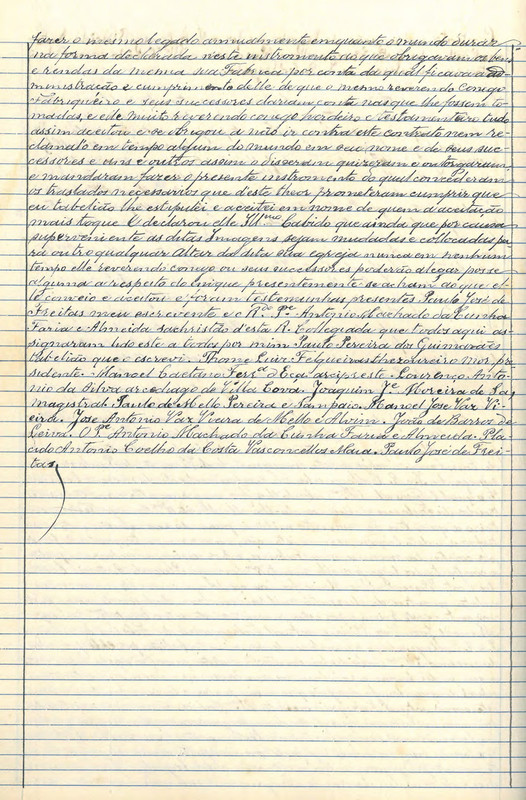 fazer o mesmo legado annualmente emquanto o mundo durar
na forma declarada neste instromento ao que obrigavam os bens
e rendas da mesma sua Fabrica por conta da qual ficava a ad-
ministração e cumprimento delle de que o mesmo reverendo Conego
Fabriqueiro e seus successores dariam conta nas que lhe fossem to-
madas, e elle muito reverendo conego herdeiro e testamenteiro tudo
assim aceitou e se obrigou a não ir contra este contrato nem re-
clamalo em tempo algum do mundo em seu nome e de seus suc-
cessores e uns e outros assim o disseram quizeram e outorgaram,
e mandaram fazer o presente instromento do qual concederam
os traslados necessarios que deste theor prometeram cumprir que
eu tabelião lhe estipulei e aceitei em nome de quem a aceitação
mais toque. E declarou elle Ill.mo Cabido que ainda que por causa
superveniente as ditas Imagens sejam mudadas e collocadas pa-
ra outro qualquer Altar da dita sua egreja nunca em nenhum
tempo elle reverendo conego ou seus successores poderão alegar posse
alguma a respeito do em que presentemente se acham ao que el-
le conveio e aceitou e foram testemunhas presentes Paulo José de
Freitas meu escrevente e o R.do P.e Antonio Machado da Cunha
Faria e Almeida sachristão d'esta R. Collegiada que todos aqui as-
signaram lido este a todos por mim Paulo Pereira dos Guimarães
tabelião que o escrevi. Thome Luiz Felgueiras thezoureiro mór pre-
sidente. Manoel Caetano Fer.a d'Eça arcipreste. Lourenço Anto-
nio da Silva arcediago de Villa Cova. Joaquim J.e Moreira de Sá
magistral. Paulo de Mello Pereira e Sampaio. Manoel José Vaz Vi-
eira. José Antonio Vaz Vieira de Mello e Alvim. João de Barros de
Leiva. O P.e Antonio Machado da Cunha Faria e Almeida. Pla-
cido Antonio Coelho da Costa Vasconcellos Maia. Paulo José de Frei-
tas.